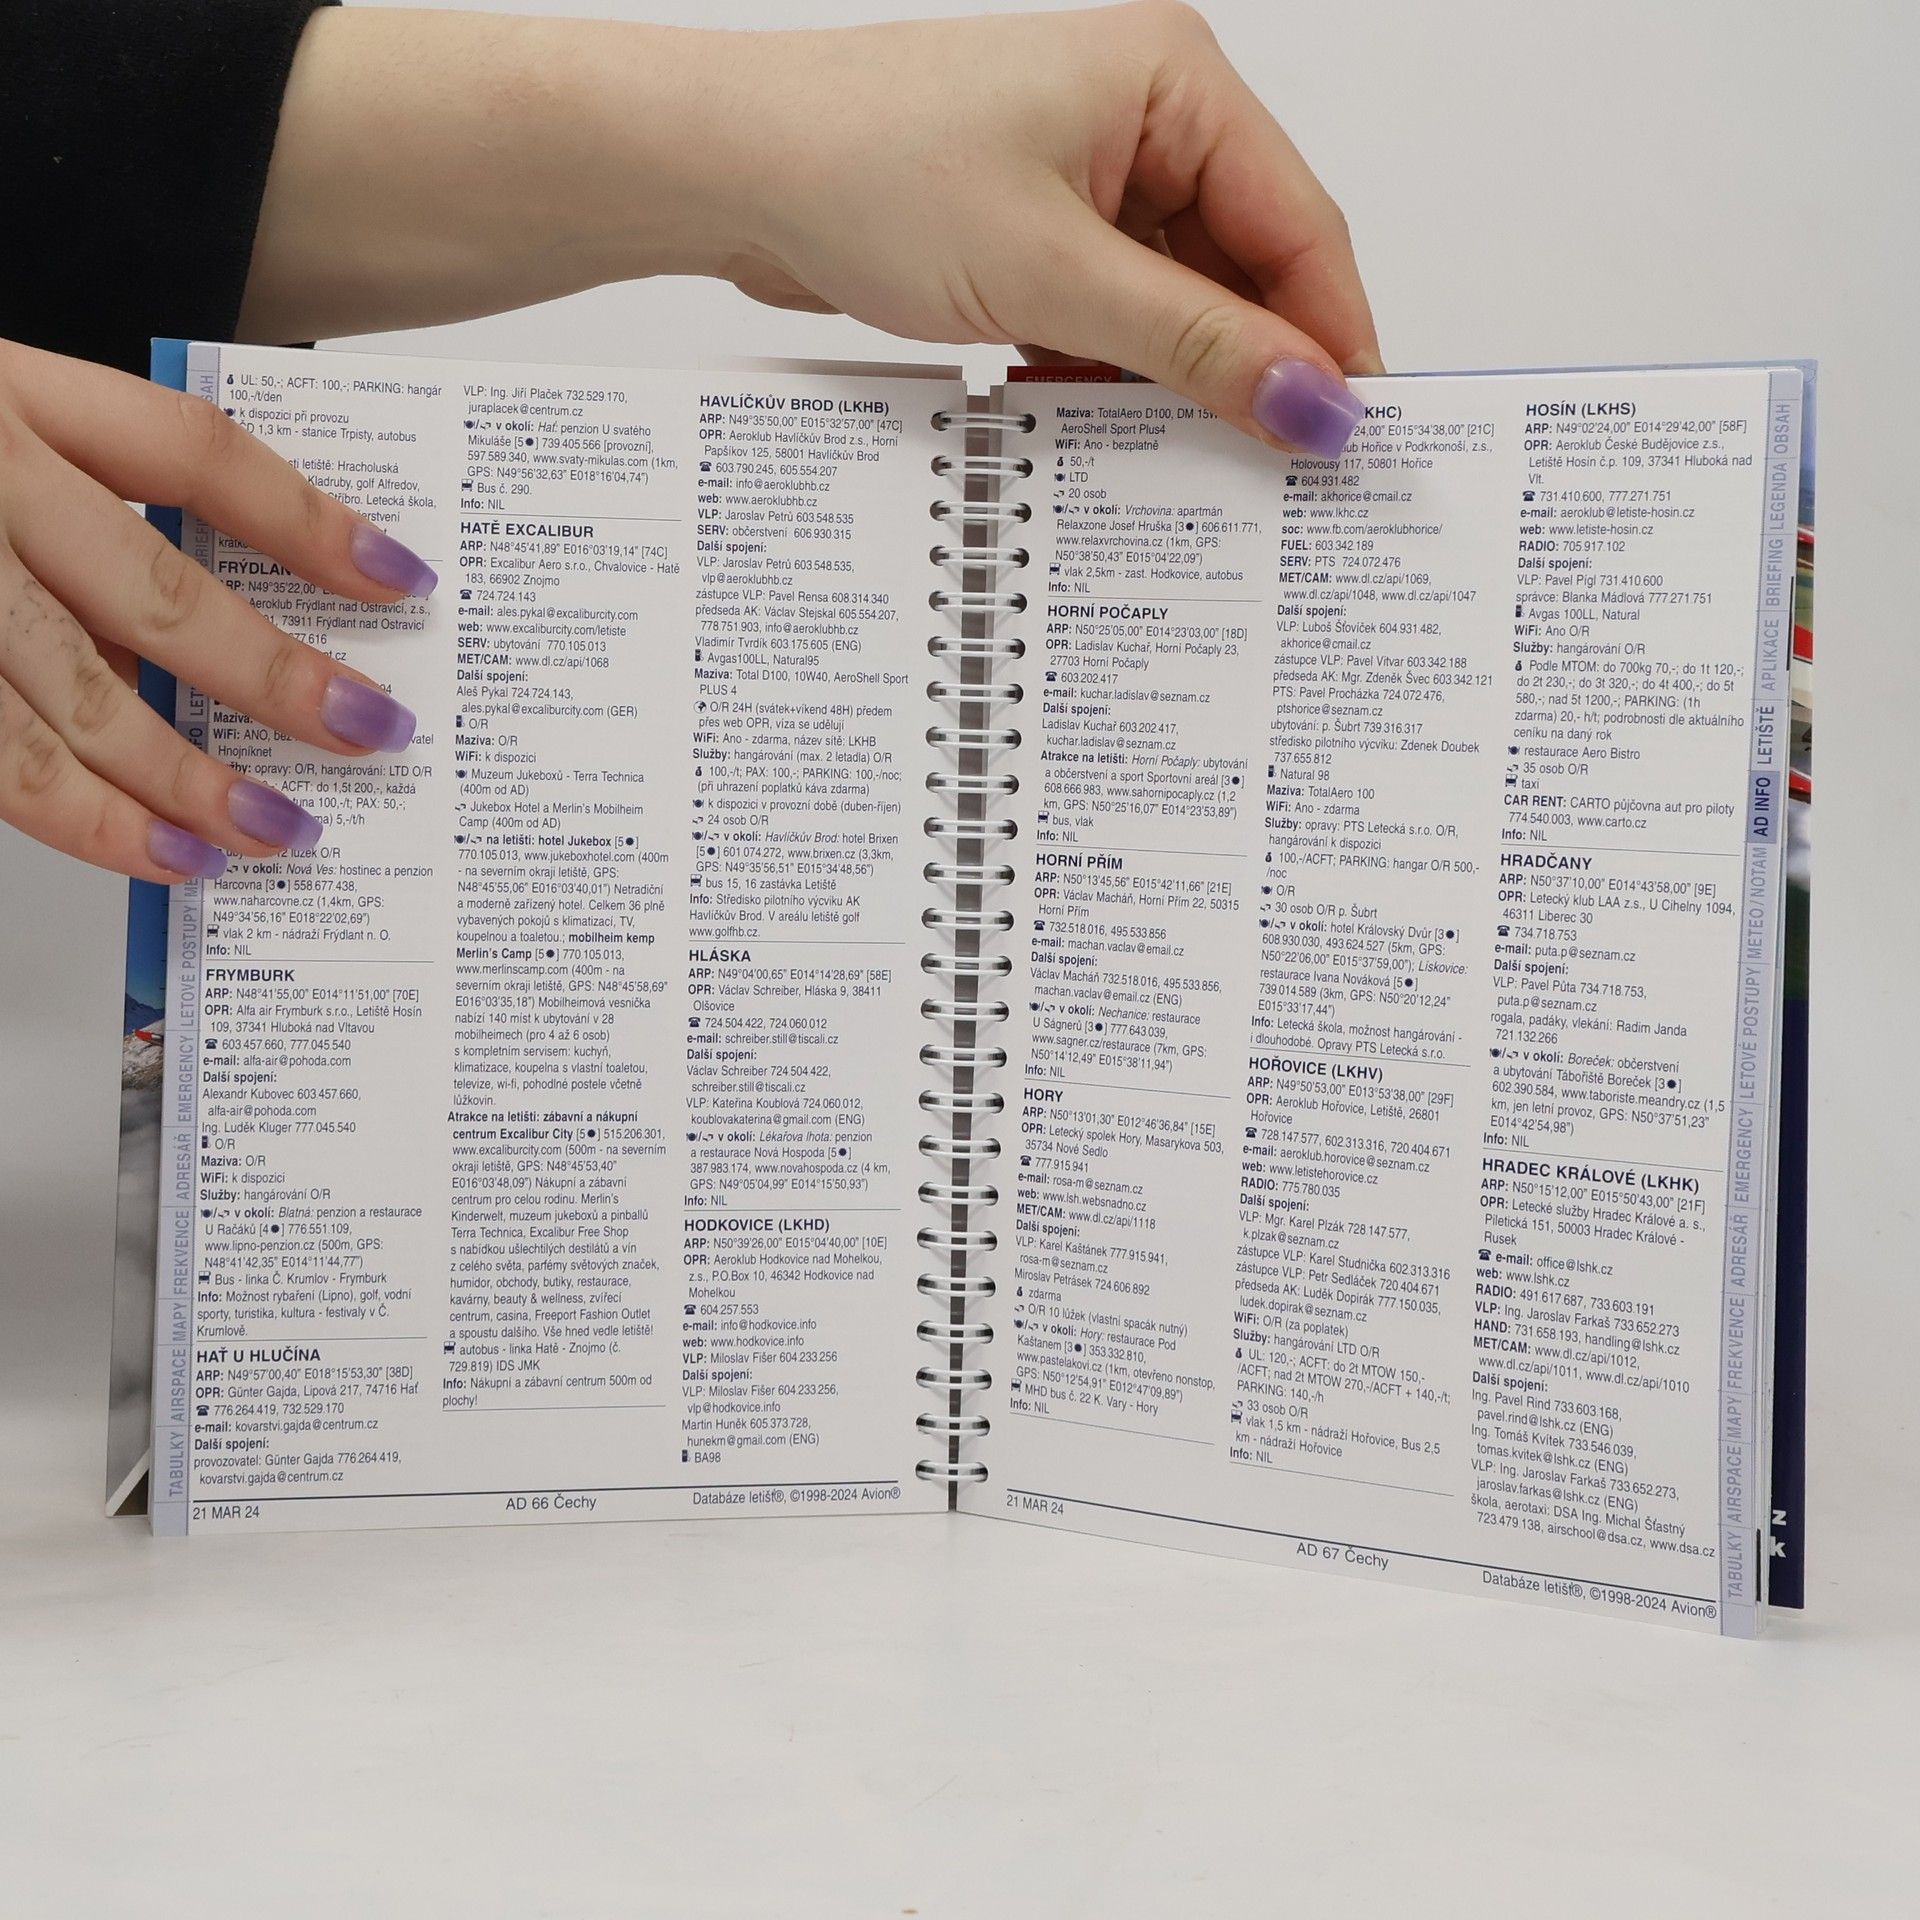 UL: 50,-; ACFT: 100,-; PARKING: hangár
100,-/t/den
k dispozici při provozu
ČD 1,3 km - stanice Trpisty, autobus
letiště: Hracholuská
Kladruby, golf Alfredov,
Stříbro. Letecká škola,
FRÝDLAN
ARP: N49°35'22,00"
Aeroklub Frýdlant nad Ostravicí, z.s.,
73911 Frýdlant nad Ostravicí
Maziva:
WiFi: ANO,
Hnojníknet
opravy: O/R, hangárování: LTD O/R
ACFT: do 1,5t 200,-, každá
100,-/t; PAX: 50,-;
5,-/t/h
12 lůžek O/R
v okolí: Nová Ves: hostinec a penzion
Harcovna [3✹] 558 677 438,
www.naharcovne.cz (1,4km, GPS:
N49°34'56,16" E018°22'02,69")
vlak 2 km - nádraží Frýdlant n. O.
Info: NIL
FRYMBURK
ARP: N48°41'55,00" E014°11'51,00" [70E]
OPR: Alfa air Frymburk s.r.o., Letiště Hosín
109, 37341 Hluboká nad Vltavou
☎ 603 457 660, 777 045 540
e-mail: alfa-air@pohoda.com
Další spojení:
Alexandr Kubovec 603 457 660,
alfa-air@pohoda.com
Ing. Luděk Kluger 777 045 540
O/R
Maziva: O/R
WiFi: k dispozici
Služby: hangárování O/R
v okolí: Blatná: penzion a restaurace
U Račáků [4✹] 776 551 109,
www.lipno-penzion.cz (500m, GPS:
N48°41'42,35" E014°11'44,77")
Bus - linka Č. Krumlov - Frymburk
Info: Možnost rybaření (Lipno), golf, vodní
sporty, turistika, kultura - festivaly v Č.
Krumlově.
HAŤ U HLUČÍNA
ARP: N49°57'00,40" E018°15'53,30" [38D]
OPR: Günter Gajda, Lipová 217, 74716 Hať
☎ 776 264 419, 732 529 170
e-mail: kovarstvi.gajda@centrum.cz
Další spojení:
provozovatel: Günter Gajda 776 264 419,
kovarstvi.gajda@centrum.cz
VLP: Ing. Jiří Plaček 732 529 170,
juraplacek@centrum.cz
v okolí: Hať: penzion U svatého
Mikuláše [5✹] 739 405 566 [provozní],
597 589 340, www.svaty-mikulas.com (1km,
GPS: N49°56'32,63" E018°16'04,74")
Bus č. 290.
Info: NIL
HATĚ EXCALIBUR
ARP: N48°45'41,89" E016°03'19,14" [74C]
OPR: Excalibur Aero s.r.o., Chvalovice - Hatě
183, 66902 Znojmo
☎ 724 724 143
e-mail: ales.pykal@excaliburcity.com
web: www.excaliburcity.com/letiste
SERV: ubytování 770 105 013
MET/CAM: www.dl.cz/api/1068
Další spojení:
Aleš Pykal 724 724 143,
ales.pykal@excaliburcity.com (GER)
O/R
Maziva: O/R
WiFi: k dispozici
Muzeum Jukeboxů - Terra Technica
(400m od AD)
Jukebox Hotel a Merlin's Mobilheim
Camp (400m od AD)
na letišti: hotel Jukebox [5✹]
770 105 013, www.jukeboxhotel.com (400m
- na severním okraji letiště, GPS:
N48°45'55,06" E016°03'40,01") Netradiční
a moderně zařízený hotel. Celkem 36 plně
vybavených pokojů s klimatizací, TV,
koupelnou a toaletou.; mobilheim kemp
Merlin's Camp [5✹] 770 105 013,
www.merlinscamp.com (400m - na
severním okraji letiště, GPS: N48°45'58,69"
E016°03'35,18") Mobilheimová vesnička
nabízí 140 míst k ubytování v 28
mobilheimech (pro 4 až 6 osob)
s kompletním servisem: kuchyň,
klimatizace, koupelna s vlastní toaletou,
televize, wi-fi, pohodlné postele včetně
lůžkovin.
Atrakce na letišti: zábavní a nákupní
centrum Excalibur City [5✹] 515 206 301,
www.excaliburcity.com (500m - na severním
okraji letiště, GPS: N48°45'53,40"
E016°03'48,09") Nákupní a zábavní
centrum pro celou rodinu. Merlin's
Kinderwelt, muzeum jukeboxů a pinballů
Terra Technica, Excalibur Free Shop
s nabídkou ušlechtilých destilátů a vín
z celého světa, parfémy světových značek,
humidor, obchody, butiky, restaurace,
kavárny, beauty & wellness, zvířecí
centrum, casina, Freeport Fashion Outlet
a spoustu dalšího. Vše hned vedle letiště!
autobus - linka Hatě - Znojmo (č.
729.819) IDS JMK
Info: Nákupní a zábavní centrum 500m od
plochy!
HAVLÍČKŮV BROD (LKHB)
ARP: N49°35'50,00" E015°32'57,00" [47C]
OPR: Aeroklub Havlíčkův Brod z.s., Horní
Papšíkov 125, 58001 Havlíčkův Brod
☎ 603 790 245, 605 554 207
e-mail: info@aeroklubhb.cz
web: www.aeroklubhb.cz
VLP: Jaroslav Petrů 603 548 535
SERV: občerstvení 606 930 315
Další spojení:
VLP: Jaroslav Petrů 603 548 535,
vlp@aeroklubhb.cz
zástupce VLP: Pavel Rensa 608 314 340
předseda AK: Václav Stejskal 605 554 207,
778 751 903, info@aeroklubhb.cz
Vladimír Tvrdík 603 175 605 (ENG)
Avgas100LL, Natural95
Maziva: Total D100, 10W40, AeroShell Sport
PLUS 4
O/R 24H (svátek+víkend 48H) předem
přes web OPR, víza se udělují
WiFi: Ano - zdarma, název sítě: LKHB
Služby: hangárování (max. 2 letadla) O/R
100,-/t; PAX: 100,-; PARKING: 100,-/noc;
(při uhrazení poplatků káva zdarma)
k dispozici v provozní době (duben-říjen)
24 osob O/R
v okolí: Havlíčkův Brod: hotel Brixen
[5✹] 601 074 272, www.brixen.cz (3,3km,
GPS: N49°35'56,51" E015°34'48,56")
bus 15, 16 zastávka Letiště
Info: Středisko pilotního výcviku AK
Havlíčkův Brod. V areálu letiště golf
www.golfhb.cz.
HLÁSKA
ARP: N49°04'00,65" E014°14'28,69" [58E]
OPR: Václav Schreiber, Hláska 9, 38411
Olšovice
☎ 724 504 422, 724 060 012
e-mail: schreiber.still@tiscali.cz
Další spojení:
Václav Schreiber 724 504 422,
schreiber.still@tiscali.cz
VLP: Kateřina Koublová 724 060 012,
koublovakaterina@gmail.com (ENG)
v okolí: Lékařova lhota: penzion
a restaurace Nová Hospoda [5✹]
387 983 174, www.novahospoda.cz (4 km,
GPS: N49°05'04,99" E014°15'50,93")
Info: NIL
HODKOVICE (LKHD)
ARP: N50°39'26,00" E015°04'40,00" [10E]
OPR: Aeroklub Hodkovice nad Mohelkou,
z.s., P.O.Box 10, 46342 Hodkovice nad
Mohelkou
☎ 604 257 553
e-mail: info@hodkovice.info
web: www.hodkovice.info
VLP: Miloslav Fišer 604 233 256
Další spojení:
VLP: Miloslav Fišer 604 233 256,
vlp@hodkovice.info
Martin Huněk 605 373 728,
hunekm@gmail.com (ENG)
BA98
21 MAR 24
AD 66 Čechy
Databáze letišť®, ©1998-2024 Avion®
TABULKY AIRSPACE MAPY FREKVENCE ADRESÁŘ EMERGENCY LETOVÉ POSTUPY
EMERGENCY
Maziva: TotalAero D100, DM 15W
AeroShell Sport Plus4
WiFi: Ano - bezplatně
50,-/t
LTD
20 osob
v okolí: Vrchovina: apartmán
Relaxzone Josef Hruška [3✹] 606 611 771,
www.relaxvrchovina.cz (1km, GPS:
N50°38'50,43" E015°04'22,09")
vlak 2,5km - zast. Hodkovice, autobus
Info: NIL
HORNÍ POČAPLY
ARP: N50°25'05,00" E014°23'03,00" [18D]
OPR: Ladislav Kuchař, Horní Počaply 23,
27703 Horní Počaply
☎ 603 202 417
e-mail: kuchar.ladislav@seznam.cz
Další spojení:
Ladislav Kuchař 603 202 417,
kuchar.ladislav@seznam.cz
Atrakce na letišti: Horní Počaply: ubytování
a občerstvení a sport Sportovní areál [3✹]
608 666 983, www.sahornipocaply.cz (1,2
km, GPS: N50°25'16,07" E014°23'53,89")
bus, vlak
Info: NIL
HORNÍ PŘÍM
ARP: N50°13'45,56" E015°42'11,66" [21E]
OPR: Václav Macháň, Horní Přím 22, 50315
Horní Přím
☎ 732 518 016, 495 533 856
e-mail: machan.vaclav@email.cz
Další spojení:
Václav Macháň 732 518 016, 495 533 856,
machan.vaclav@email.cz (ENG)
v okolí: Nechanice: restaurace
U Ságnerů [3✹] 777 643 039,
www.sagner.cz/restaurace (7km, GPS:
N50°14'12,49" E015°38'11,94")
Info: NIL
HORY
ARP: N50°13'01,30" E012°46'36,84" [15E]
OPR: Letecký spolek Hory, Masarykova 503,
35734 Nové Sedlo
☎ 777 915 941
e-mail: rosa-m@seznam.cz
web: www.lsh.websnadno.cz
MET/CAM: www.dl.cz/api/1118
Další spojení:
VLP: Karel Kaštánek 777 915 941,
rosa-m@seznam.cz
Miroslav Petrásek 724 606 892
zdarma
O/R 10 lůžek (vlastní spacák nutný)
v okolí: Hory: restaurace Pod
Kaštanem [3✹] 353 332 810,
www.pastelakovi.cz (1km, otevřeno nonstop,
GPS: N50°12'54,91" E012°47'09,89")
MHD bus č. 22 K. Vary - Hory
Info: NIL
KHC)
24,00" E015°34'38,00" [21C]
ub Hořice v Podkrkonoší, z.s.,
Holovousy 117, 50801 Hořice
☎ 604 931 482
e-mail: akhorice@cmail.cz
web: www.lkhc.cz
soc: www.fb.com/aeroklubhorice/
FUEL: 603 342 189
SERV: PTS 724 072 476
MET/CAM: www.dl.cz/api/1069,
www.dl.cz/api/1048, www.dl.cz/api/1047
Další spojení:
VLP: Luboš Šťovíček 604 931 482,
akhorice@cmail.cz
zástupce VLP: Pavel Vitvar 603 342 188
předseda AK: Mgr. Zdeněk Švec 603 342 121
PTS: Pavel Procházka 724 072 476,
ptshorice@seznam.cz
ubytování: p. Šubrt 739 316 317
středisko pilotního výcviku: Zdenek Doubek
737 655 812
Natural 98
Maziva: TotalAero 100
WiFi: Ano - zdarma
Služby: opravy: PTS Letecká s.r.o. O/R,
hangárování k dispozici
100,-/ACFT; PARKING: hangar O/R 500,-
/noc
O/R
30 osob O/R p. Šubrt
v okolí: hotel Královský Dvůr [3✹]
608 930 030, 493 624 527 (5km, GPS:
N50°22'06,00" E015°37'59,00"); Lískovice:
restaurace Ivana Nováková [5✹]
739 014 589 (3km, GPS: N50°20'12,24"
E015°33'17,44")
Info: Letecká škola, možnost hangárování -
i dlouhodobě. Opravy PTS Letecká s.r.o.
HOŘOVICE (LKHV)
ARP: N49°50'53,00" E013°53'38,00" [29F]
OPR: Aeroklub Hořovice, Letiště, 26801
Hořovice
☎ 728 147 577, 602 313 316, 720 404 671
e-mail: aeroklub.horovice@seznam.cz
web: www.letistehorovice.cz
RADIO: 775 780 035
Další spojení:
VLP: Mgr. Karel Plzák 728 147 577,
k.plzak@seznam.cz
zástupce VLP: Karel Studnička 602 313 316
zástupce VLP: Petr Sedláček 720 404 671
předseda AK: Luděk Dopirák 777 150 035,
ludek.dopirak@seznam.cz
WiFi: O/R (za poplatek)
Služby: hangárování LTD O/R
UL: 120,-; ACFT: do 2t MTOW 150,-
/ACFT; nad 2t MTOW 270,-/ACFT + 140,-/t;
PARKING: 140,-/h
33 osob O/R
vlak 1,5 km - nádraží Hořovice, Bus 2,5
km - nádraží Hořovice
Info: NIL
HOSÍN (LKHS)
ARP: N49°02'24,00" E014°29'42,00" [58F]
OPR: Aeroklub České Budějovice z.s.,
Letiště Hosín č.p. 109, 37341 Hluboká nad
Vlt.
☎ 731 410 600, 777 271 751
e-mail: aeroklub@letiste-hosin.cz
web: www.letiste-hosin.cz
RADIO: 705 917 102
Další spojení:
VLP: Pavel Pígl 731 410 600
správce: Blanka Mádlová 777 271 751
Avgas 100LL, Natural
WiFi: Ano O/R
Služby: hangárování O/R
Podle MTOM: do 700kg 70,-; do 1t 120,-;
do 2t 230,-; do 3t 320,-; do 4t 400,-; do 5t
580,-; nad 5t 1200,-; PARKING: (1h
zdarma) 20,- h/t; podrobnosti dle aktuálního
ceníku na daný rok
restaurace Aero Bistro
35 osob O/R
taxi
CAR RENT: CARTO půjčovna aut pro piloty
774 540 003, www.carto.cz
Info: NIL
HRADČANY
ARP: N50°37'10,00" E014°43'58,00" [9E]
OPR: Letecký klub LAA z.s., U Cihelny 1094,
46311 Liberec 30
☎ 734 718 753
e-mail: puta.p@seznam.cz
Další spojení:
VLP: Pavel Půta 734 718 753,
puta.p@seznam.cz
rogala, padáky, vlekání: Radim Janda
721 132 266
v okolí: Boreček: občerstvení
a ubytování Tábořiště Boreček [3✹]
602 390 584, www.taboriste.meandry.cz (1,5
km, jen letní provoz, GPS: N50°37'51,23"
E014°42'54,98")
Info: NIL
HRADEC KRÁLOVÉ (LKHK)
ARP: N50°15'12,00" E015°50'43,00" [21F]
OPR: Letecké služby Hradec Králové a. s.,
Piletická 151, 50003 Hradec Králové -
Rusek
☎ e-mail: office@lshk.cz
web: www.lshk.cz
RADIO: 491 617 687, 733 603 191
VLP: Ing. Jaroslav Farkaš 733 652 273
HAND: 731 658 193, handling@lshk.cz
MET/CAM: www.dl.cz/api/1012,
www.dl.cz/api/1011, www.dl.cz/api/1010
Další spojení:
Ing. Pavel Rind 733 603 168,
pavel.rind@lshk.cz (ENG)
Ing. Tomáš Kvítek 733 546 039,
tomas.kvitek@lshk.cz (ENG)
VLP: Ing. Jaroslav Farkaš 733 652 273,
jaroslav.farkas@lshk.cz (ENG)
škola, aerotaxi: DSA Ing. Michal Šťastný
723 479 138, airschool@dsa.cz, www.dsa.cz
21 MAR 24
AD 67 Čechy
Databáze letišť®, ©1998-2024 Avion®
TABULKY AIRSPACE MAPY FREKVENCE ADRESÁŘ EMERGENCY LETOVÉ POSTUPY METEO/NOTAM AD INFO LETIŠTĚ APLIKACE BRIEFING LEGENDA OBSAH
z
k